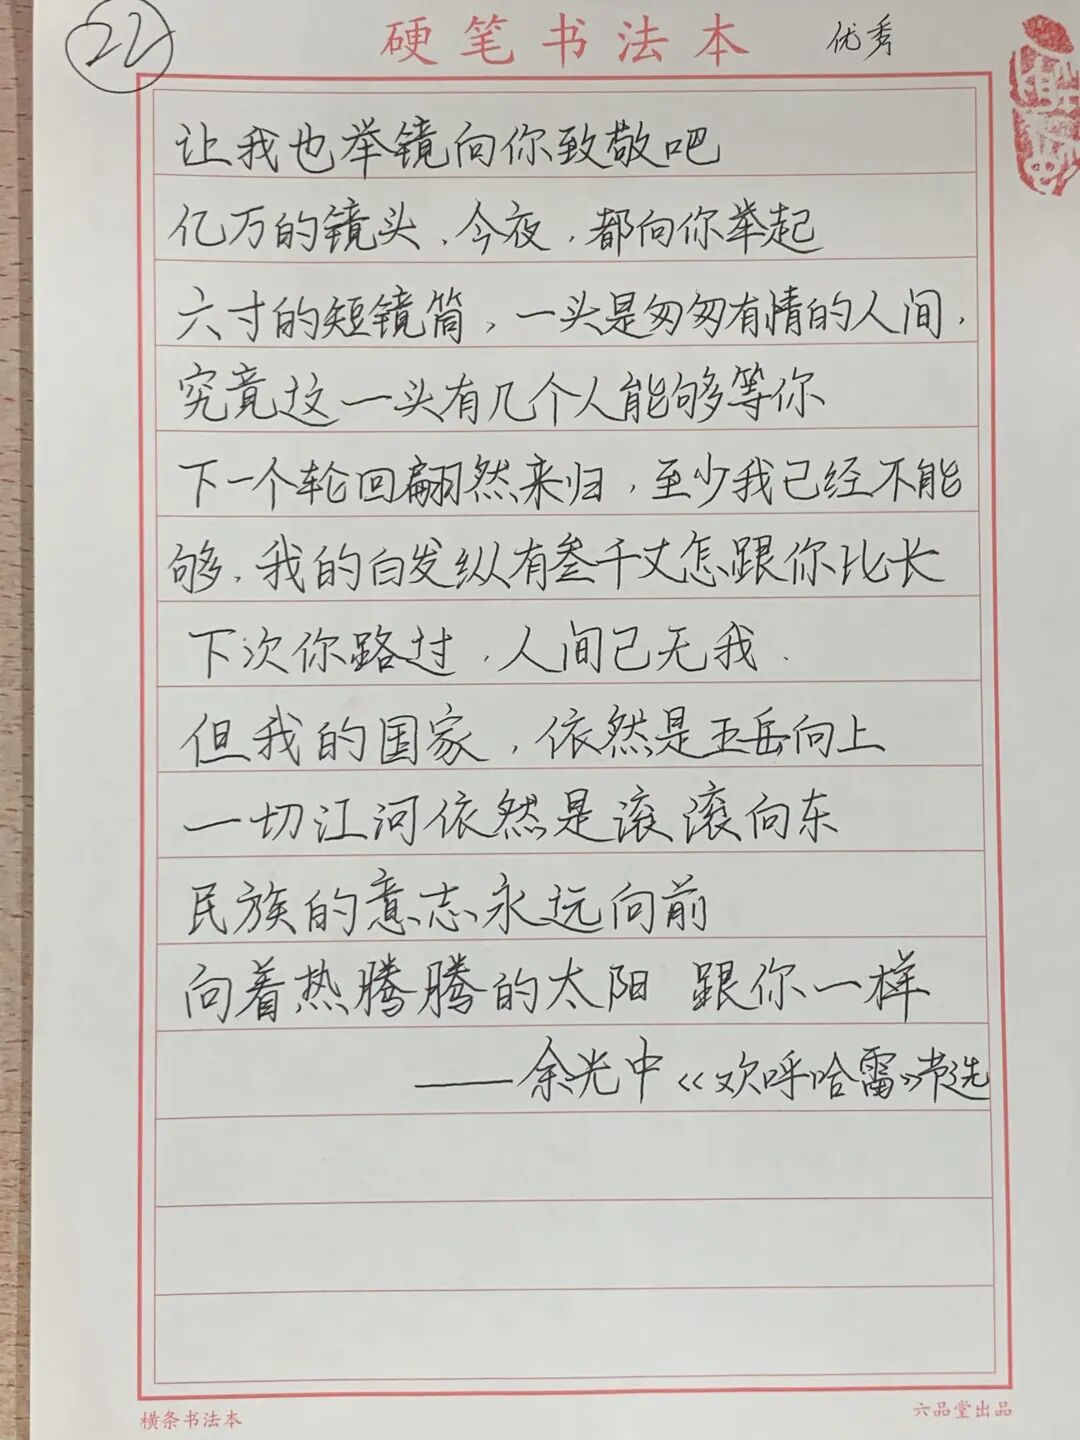 22
硬笔书法本
优秀
让我也举镜向你致敬吧
亿万的镜头,今夜,都向你举起
六寸的短镜筒,一头是匆匆有情的人间,
究竟这一头有几个人能够等你
下一个轮回翩然来归,至少我己经不能
够,我的白发纵有叁千丈怎跟你比长
下次你路过,人间己无我.
但我的国家,依然是五岳向上
一切江河依然是滚滚向东
民族的意志永远向前
向着热腾腾的太阳 跟你一样
——余光中《欢呼哈雷》节选
横条书法本
六品堂出品